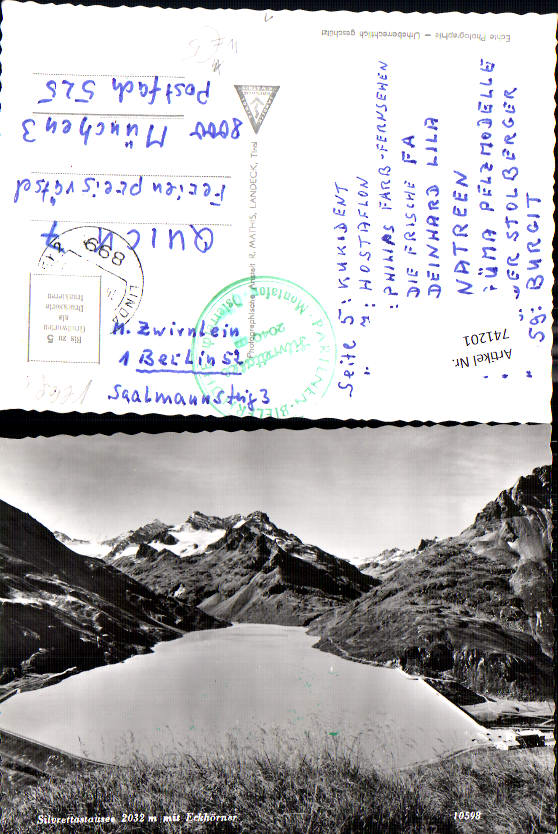 Echte Photographie – Urheberrechtlich geschützt
Photographische Anstalt R. MATHIS, LANDECK, Tirol
QUICK
Ferien preisrätsel
8000 München 3
Postfach 525
Bis zu 5
Grußworten
als
Drucksorte
frankieren
LINDA
899
M. Zwirnlein
1 Berlin 52
Saalmannstr. 3
Seite 5: KUKIDENT
" : HOSTAFLON
: PHILIPS FARB-FERNSEHEN
DIE FRISCHE FA
DEINHARD LILA
NATREEN
FÜMA PELZMODELLE
" : DER STOLBERGER
" 59: BURGIT
Artikel Nr.
741201
PARTENEN - BIELER
Montafon Österreich
Silvrettasee
Silvrettastausee 2032 m mit Eckhörner
10598